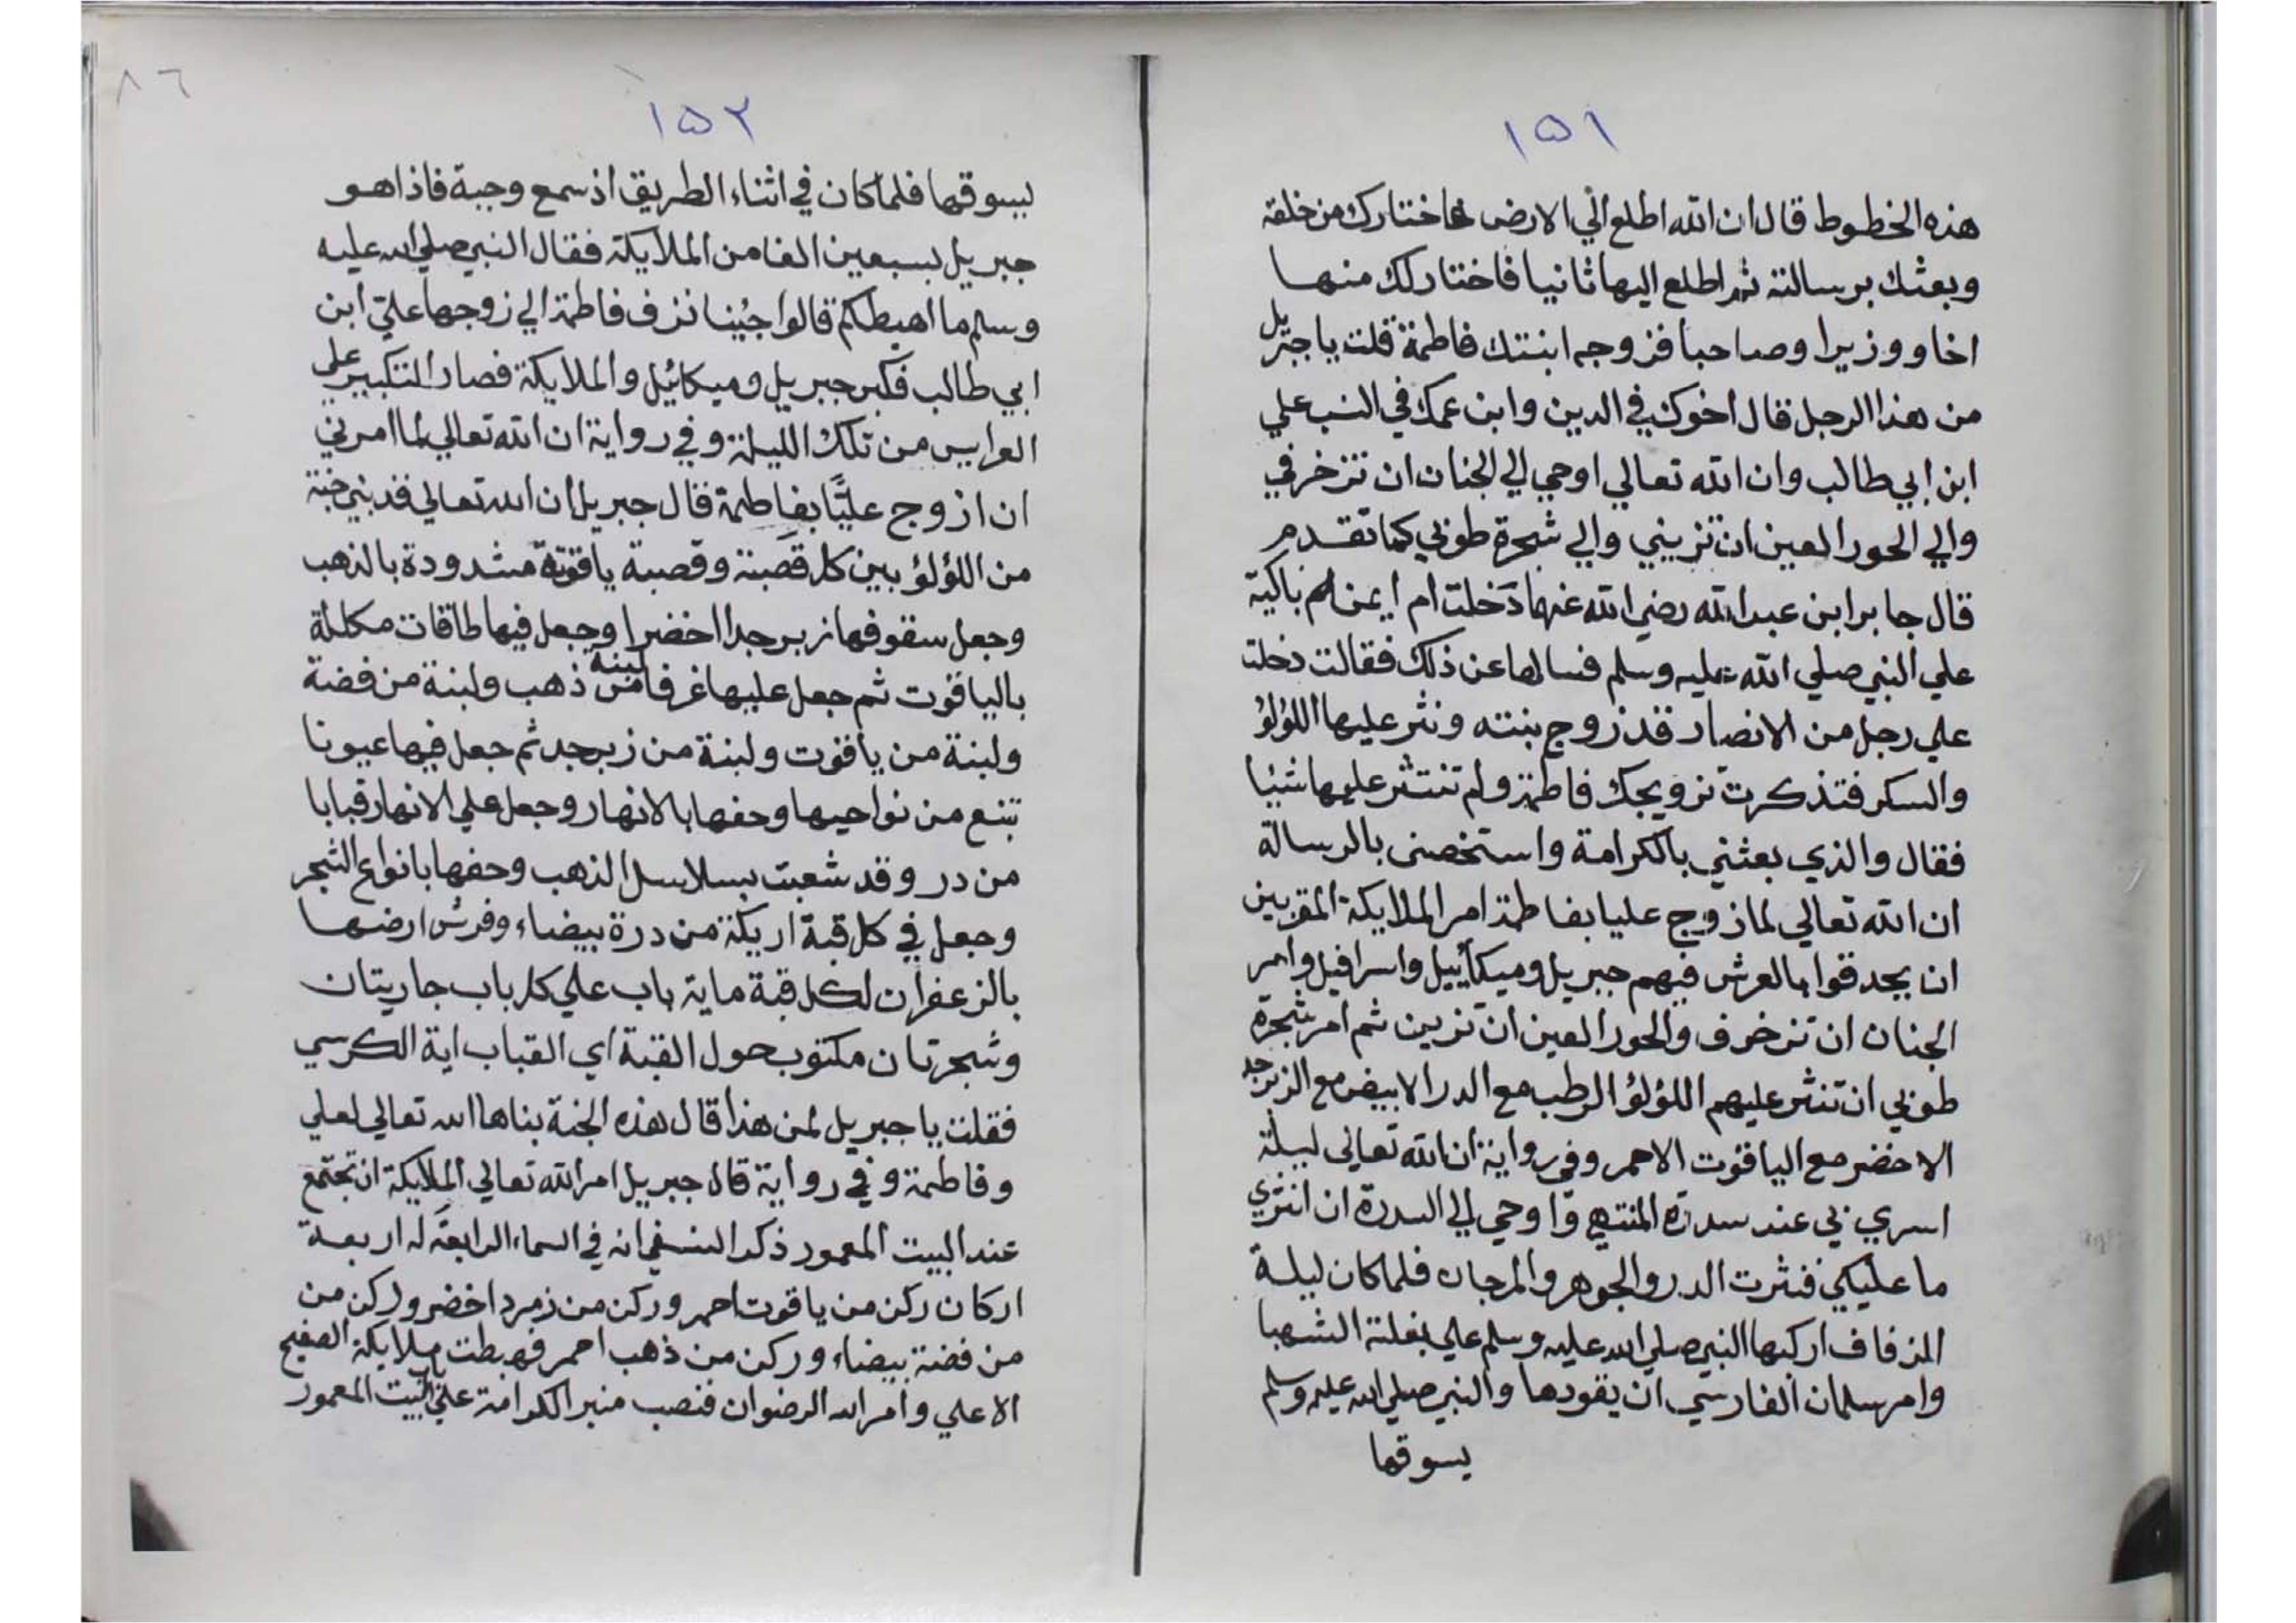 ١٥١
هذه الخطوط قال ان الله اطلع الي الارض فاختارك من خلقه
وبعثك برسالته ثم اطلع اليها ثانيا فاختار لك منها
اخا ووزيرا وصاحبا فزوجه ابنتك فاطمة قلت يا جبريل
من هذا الرجل قال اخوك في الدين وابن عمك في النسب علي
ابن ابي طالب وان الله تعالي اوحي الي الجنان ان تزخرفي
والي الحور العين ان تزيني والي شجرة طوبي كما تقدم
قال جابر ابن عبد الله رضي الله عنهما دخلت ام ايمن باكية
علي النبي صلي الله عليه وسلم فسالها عن ذلك فقالت دخلت
علي رجل من الانصار قد زوج بنته ونثر عليها اللؤلؤ
والسكر فتذكرت تزويجك فاطمة ولم تنثر عليها شيئا
فقال والذي بعثني بالكرامة واستخصني بالرسالة
ان الله تعالي لما زوج عليا بفاطمة امر الملايكة المقربين
ان يحدقوا بالعرش فيهم جبريل وميكاييل واسرافيل وامر
الجنان ان تزخرف والحور العين ان تزين ثم امر شجرة
طوبي ان تنثر عليهم اللؤلؤ الرطب مع الدر الابيض مع الزبرجد
الاخضر مع الياقوت الاحمر وفي رواية ان الله تعالي ليلة
اسري بي عند سدرة المنتهي واوحي الي السدرة ان انثري
ما عليكي فنثرت الدر والجوهر والمرجان فلما كان ليلة
الزفاف اركبها النبي صلي الله عليه وسلم علي بغلته الشهبا
وامر سلمان الفارسي ان يقودها والنبي صلي الله عليه وسلم
يسوقها
٨٦
١٥٢
يسوقها فلما كان في اثناء الطريق اذ سمع وجبة فاذا هو
جبريل بسبعين الفا من الملايكة فقال النبي صلي الله عليه
وسلم ما اهبطكم قالوا جئنا نزف فاطمة الي زوجها علي ابن
ابي طالب فكبر جبريل وميكائيل والملايكة فصار التكبير علي
العرايس من تلك الليلة وفي رواية ان الله تعالي لما امرني
ان ازوج عليًا بفاطمة قال جبريل ان الله تعالي قد بني جنة
من اللؤلؤ بين كل قصبة وقصبة ياقوتة مشدودة بالذهب
وجعل سقوفها زبرجدا اخضرا وجعل فيها طاقات مكللة
بالياقوت ثم جعل عليها غرفا لبنة من ذهب ولبنة من فضة
ولبنة من ياقوت ولبنة من زبرجد ثم جعل فيها عيونا
تنبع من نواحيها وحفها بالانهار وجعل علي الانهار قبابا
من در وقد شعبت بسلاسل الذهب وحفها بانواع الشجر
وجعل في كل قبة اريكة من درة بيضاء وفرش ارضها
بالزعفران لكل قبة ماية باب علي كل باب جاريتان
وشجرتان مكتوب حول القبة اي القباب اية الكرسي
فقلت يا جبريل لمن هذا قال هذه الجنة بناها الله تعالي لعلي
وفاطمة وفي رواية قال جبريل امر الله تعالي الملايكة ان تجتمع
عند البيت المعمور ذكر النسفي انه في السماء الرابعة له اربعة
اركان ركن من ياقوت احمر وركن من زمرد اخضر وركن من
من فضة بيضاء وركن من ذهب احمر فهبطت ملايكة الصفيح
الاعلي وامر الله الرضوان فنصب منبر الكرامة علي باب البيت المعمور